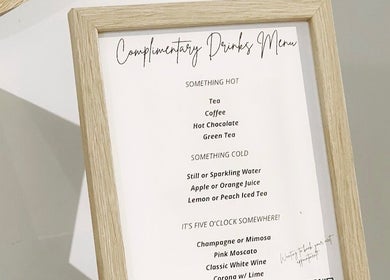 Complimentary Drinks Menu
SOMETHING HOT
Tea
Coffee
Hot Chocolate
Green Tea
SOMETHING COLD
Still or Sparkling Water
Apple or Orange Juice
Lemon or Peach Iced Tea
IT'S FIVE O'CLOCK SOMEWHERE!
Champagne or Mimosa
Pink Moscato
Classic White Wine
Corona w/ Lime
Wanting to book your next
appointment?